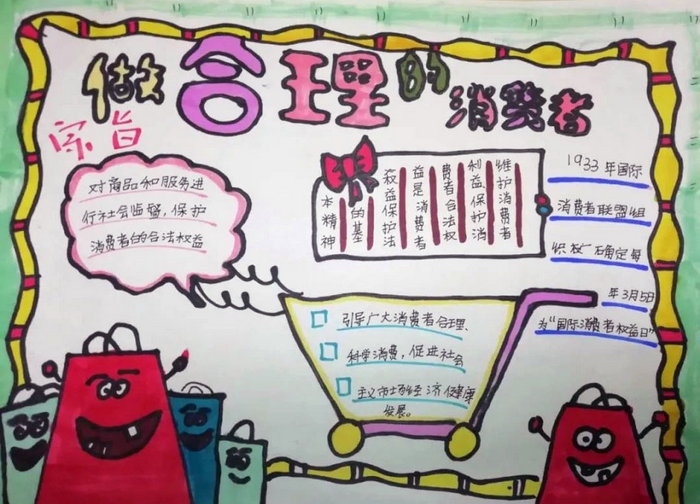 做合理的消费者
宗旨
对商品和服务进
行社会监督,保护
消费者的合法权益
维护消费者
利益,保护消
费者合法权
益是消费者
权益保护法
的基
本精神
1933年国际
消费者联盟组
织 确定每
年3月5日
为“国际消费者权益日”
引导广大消费者合理、
科学消费,促进社会
主义市场经济健康
发展。